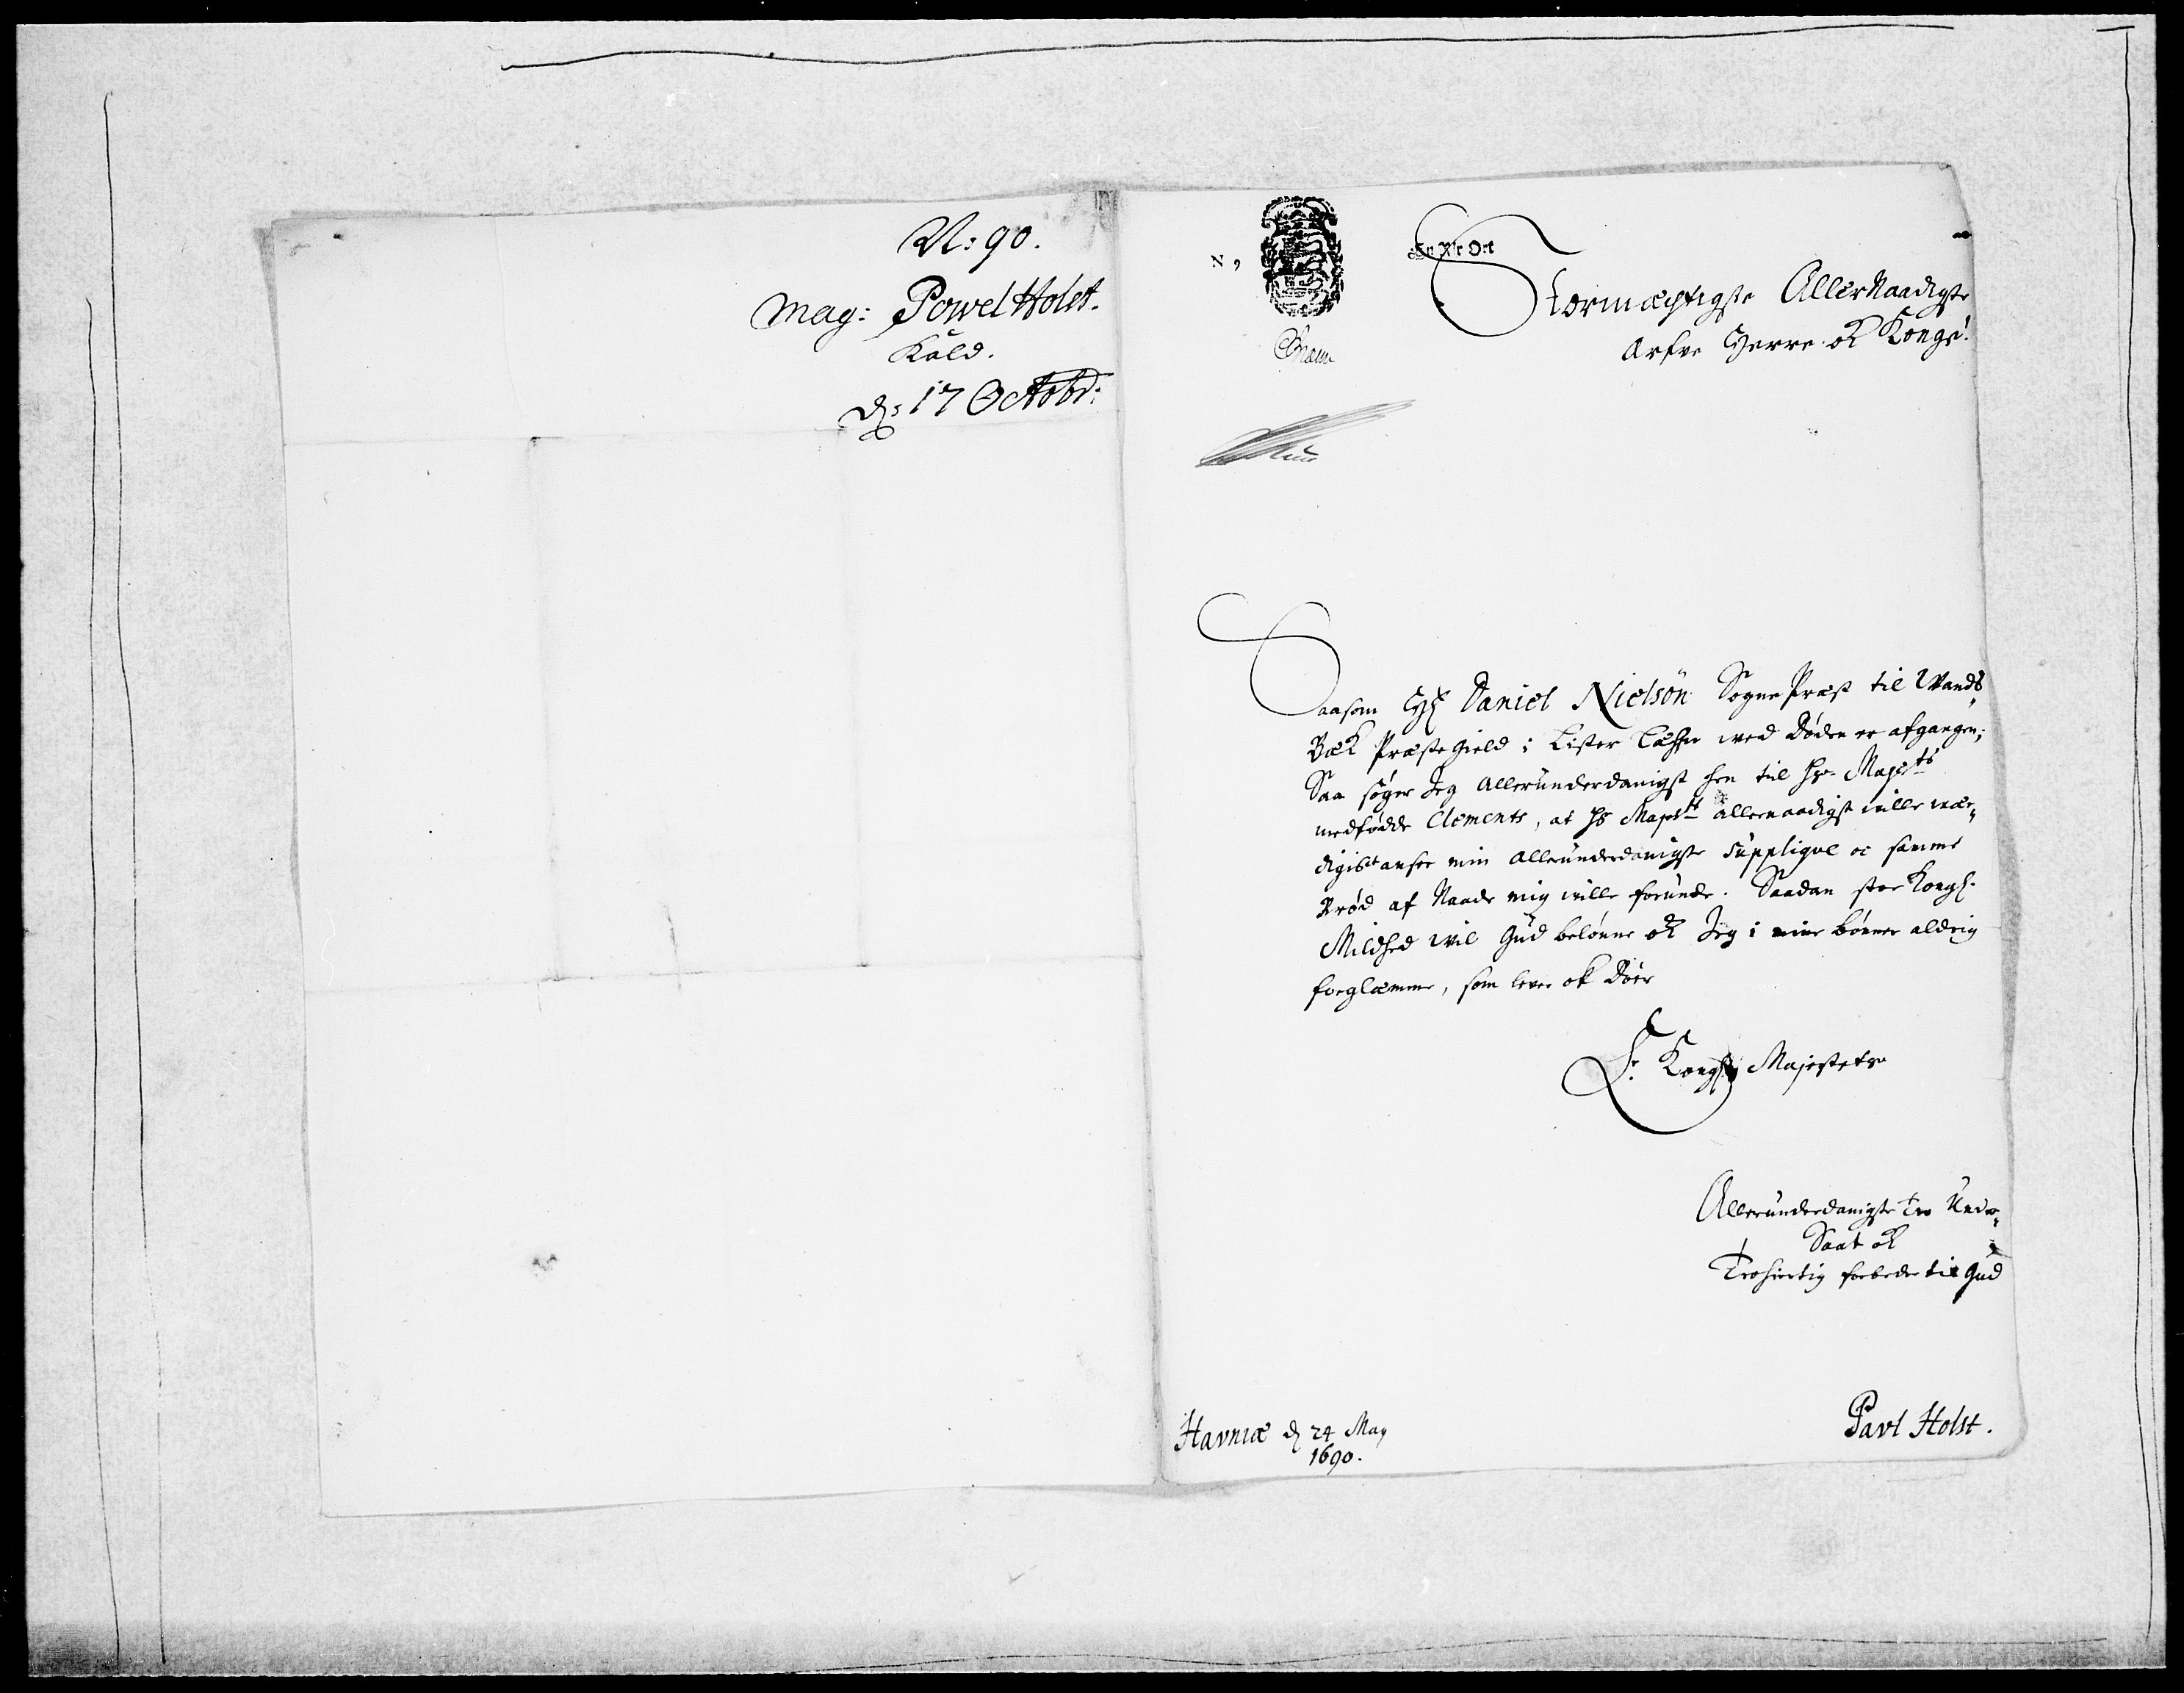 N: 90.
Mag: Powel Holst.
Kald.
d: 17 Octobr:
N 9
En Xr Ort
Stormægtigste Allernaadigste
Arfve Herre ok Konge!
Saasom Hr Daniel Nielsøn Sogne Præst til Wands
Bæk Præstegield i Lister Læhn wed Døden er afgangen;
Saa søger Jeg allerunderdanigst hen til Hs Majets
medfødde Clements, at Hs Majetts allernaadigst wille wær„
digist ansee min allerunderdanigste Supplique oc samme
Brød af Naade mig wille forunde. Saadan stor Kongl.
Mildhed wil Gud belønne ok Jeg i mine bønner aldrig
forglemme, som lever ok Døer
Kongl Majestets
Allerunderdanigste Tro Under„
Saat ok
Trohiertig forbeder til Gud
Havniæ d 24 May
1690.
Pavl Holst.